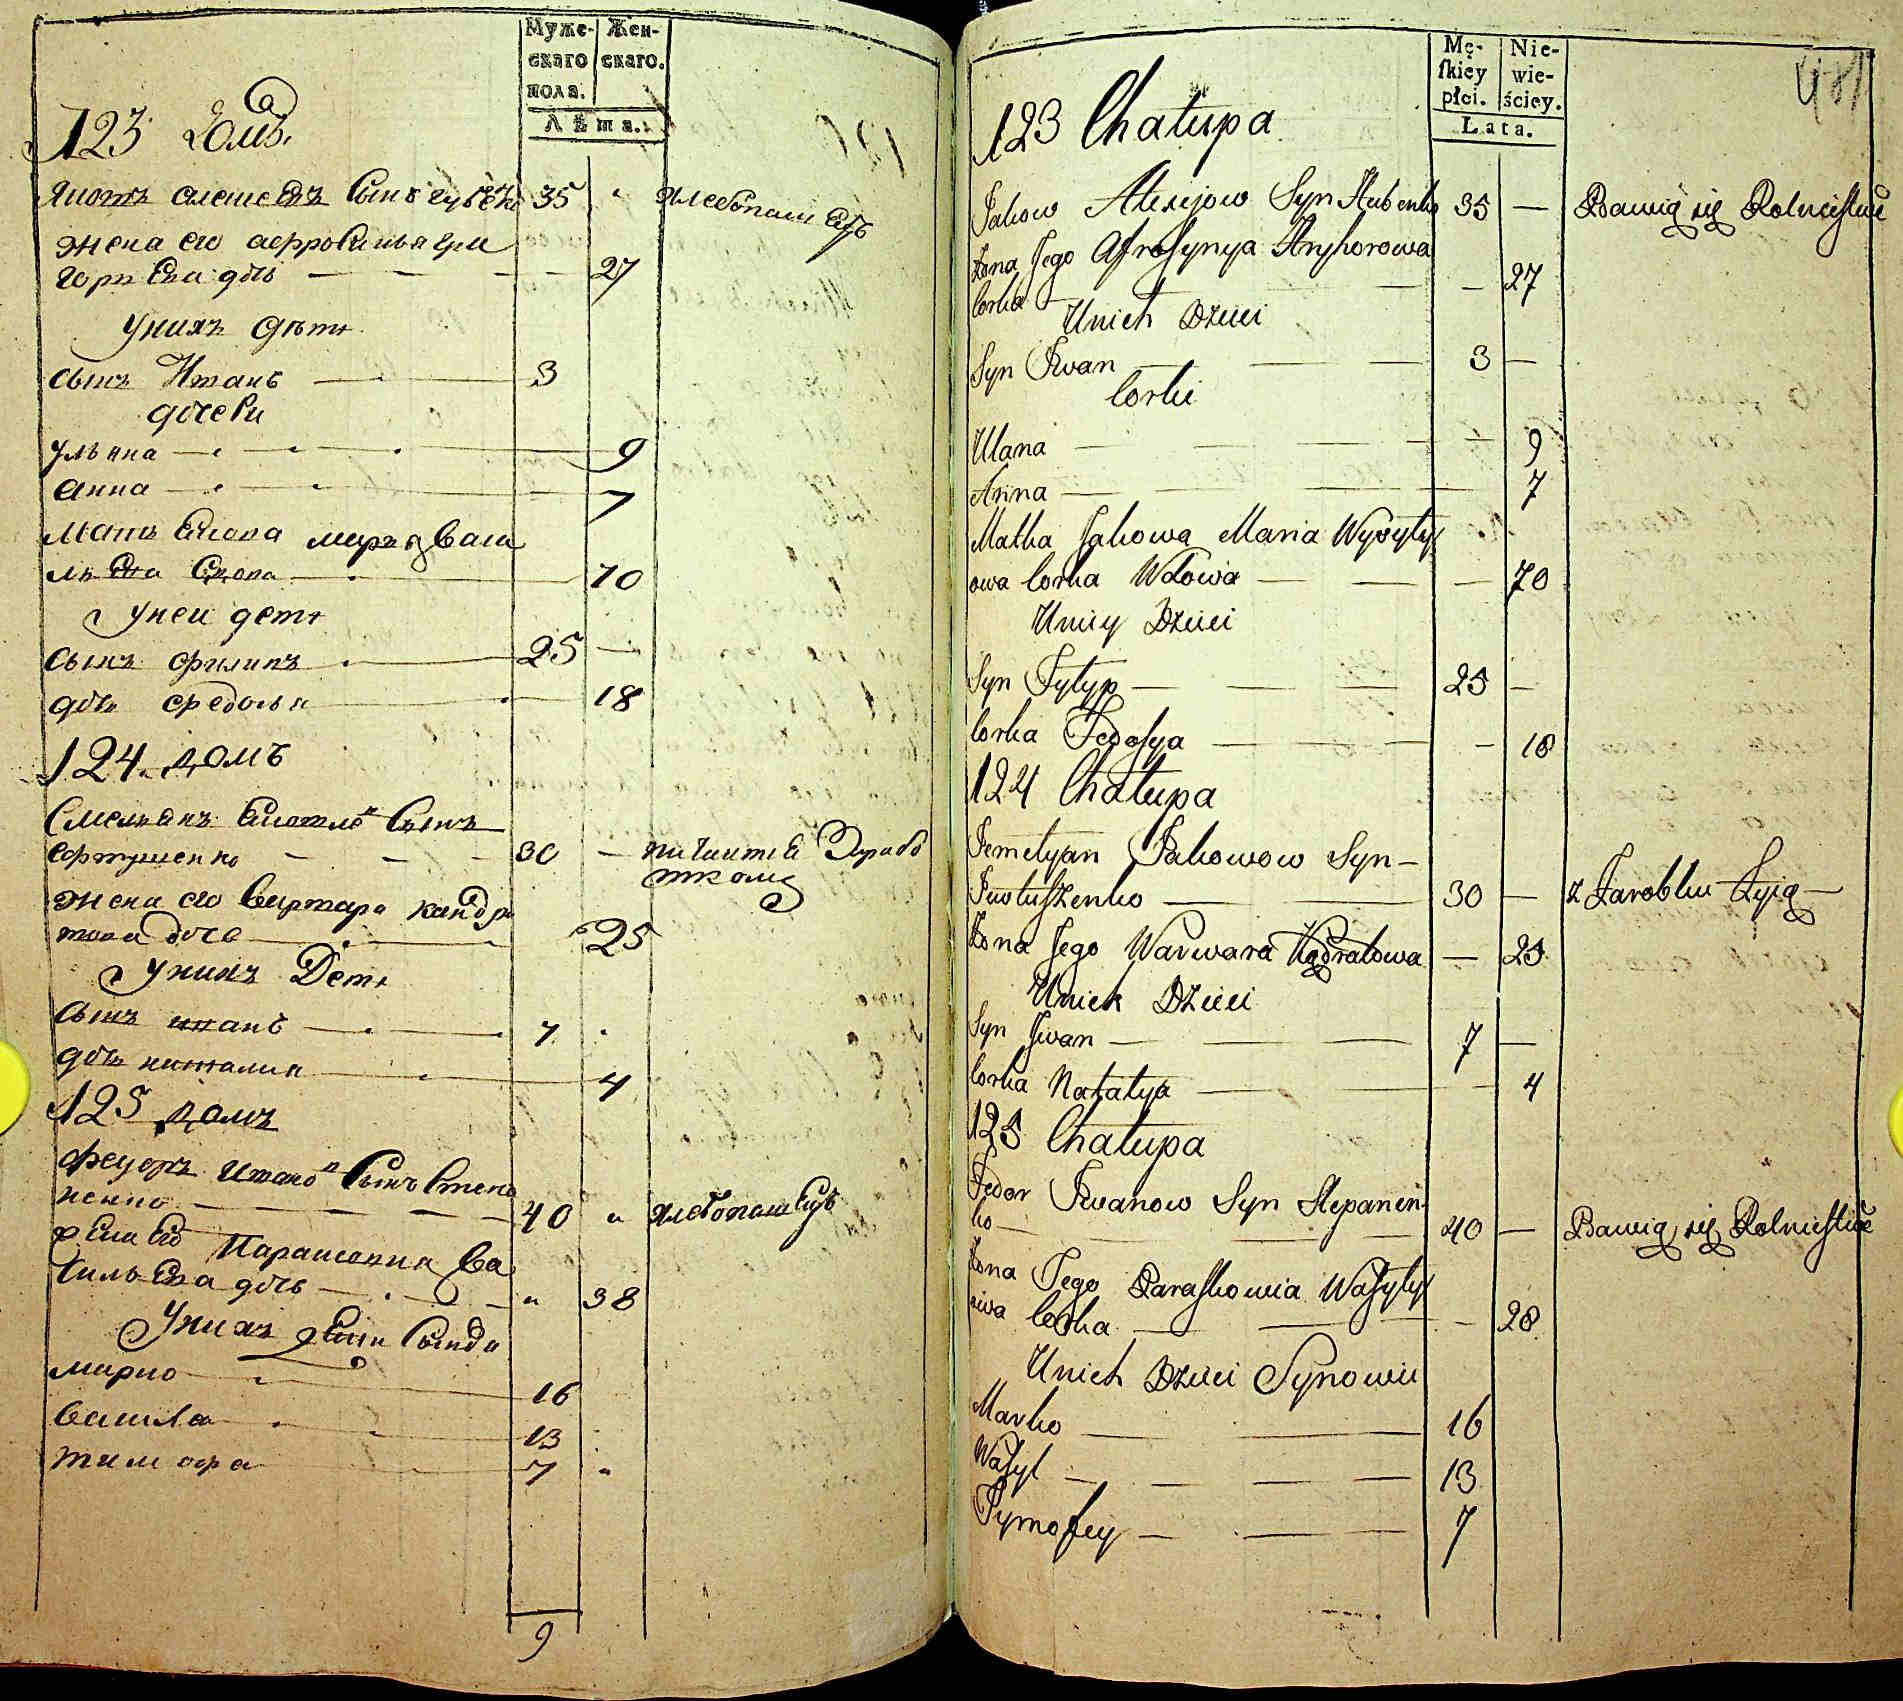 Муже-
скаго
пола.
Жен-
скаго.
Лѣта.
123 Домъ
Яковъ Алексѣевъ сынъ 35 „ хлебопашецъ
жена его Афросинья Гри
горьева дочь — 27
У нихъ дѣти
сынъ Иванъ — 3
дочери
Ульяна — 9
Анна — 7
Мать Якова Марья Васи
льева вдова — 70
У неи дети
сынъ Филипъ — 25 —
дочь Федосья — 18
124 домъ
Емельянъ Яковлевъ сынъ
— 30 —
жена его Варвара Кандра
това дочь — 25
У нихъ Дети
сынъ Иванъ — 7
дочь Наталия — 4
125 домъ
Федоръ Ивановъ сынъ Степа
ненко — 40 „ хлебопашецъ
жена его Парасковия Ва
сильева дочь — „ 38
У нихъ дети сыновя
Марко — 16
Василь — 13
Тимофей 7 „
9
Mę-
ſkiey
płci.
Nie-
wie-
ściey.
Lata.
481
123 Chałupa
Jakow Alexijow Syn Hubenko 35 — Bawią się Rolnictwē
Żona Jego Afrosynya Hryhorowa
Corka — 27
U nich Dzieci
Syn Iwan — 3 —
Corki
Ulana — 9
Anna — 7
Matka Jakowa Maria Wasyly
owa Corka Wdowa — 70
U niey Dzieci
Syn Fylyp — 25 —
Corka Fedosya — 18
124 Chałupa
Jemelyan Jakowow Syn —
Jwotuszenko — 30 — z Zarobku Żyią —
Żona Jego Warwara Kądratowa — 25
U nich Dzieci
Syn Iwan — 7 —
Corka Natalya — 4
125 Chałupa
Fedor Iwanow Syn Stepanen
ko — 40 — Bawią się Rolnictwē
Żona Jego Paraskowia Wasyly
owa Corka — 28
U nich Dzieci Synowie
Marko — 16
Wasyl — 13
Tymofey — 7